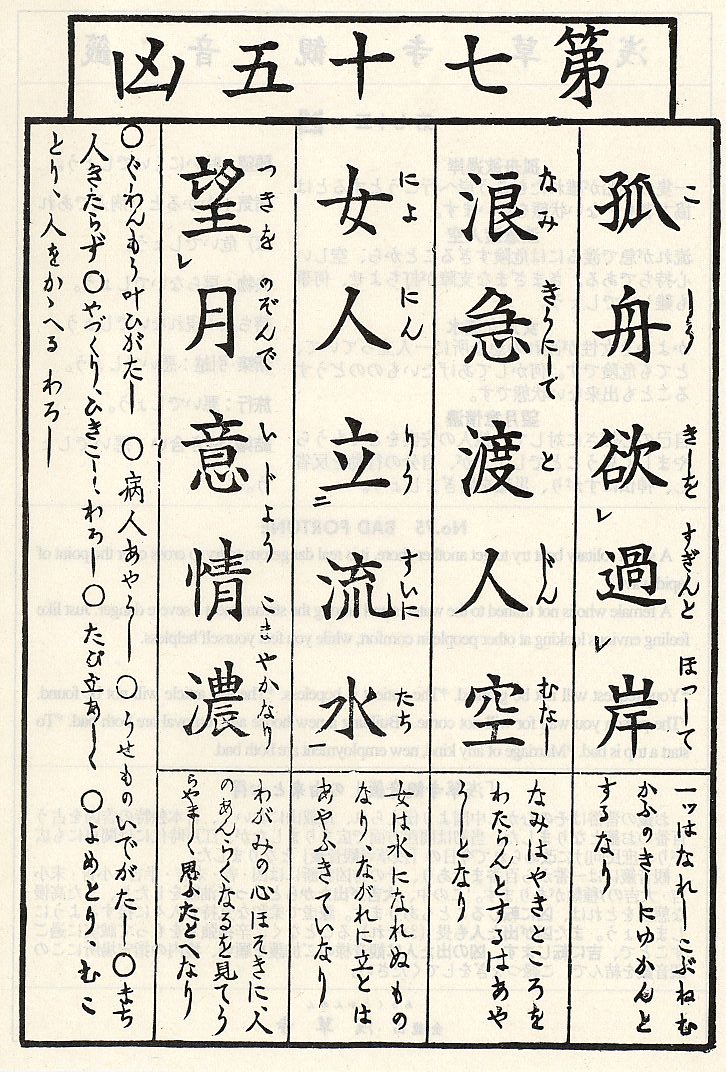 第七十五凶
こ しう きしを すぎんと ほつして
孤舟欲レ過レ岸
一ツはなれしこぶねむ
かふのきしにゆかんと
するなり
なみ きうにして と じん むな
浪急渡人空
なみはやきところを
わたらんとするはあや
うしとなり
によ にん りう すいに たち
女人立二流水一
女は水になれぬもの
なり、ながれに立とは
あやふきていなり
つきを のぞんで いじよう こまやかなり
望レ月意情濃
わがみの心ほそきに、人
のあんらくなるを見てう
らやましく思ふたとへなり
○ぐわんもう叶ひがたし ○病人あやうし ○うせものいでがたし ○まち
人きたらず ○やづくり、ひきこし、わろし ○たび立あしく ○よめとり むこ
とり、人をかゝへる わろし